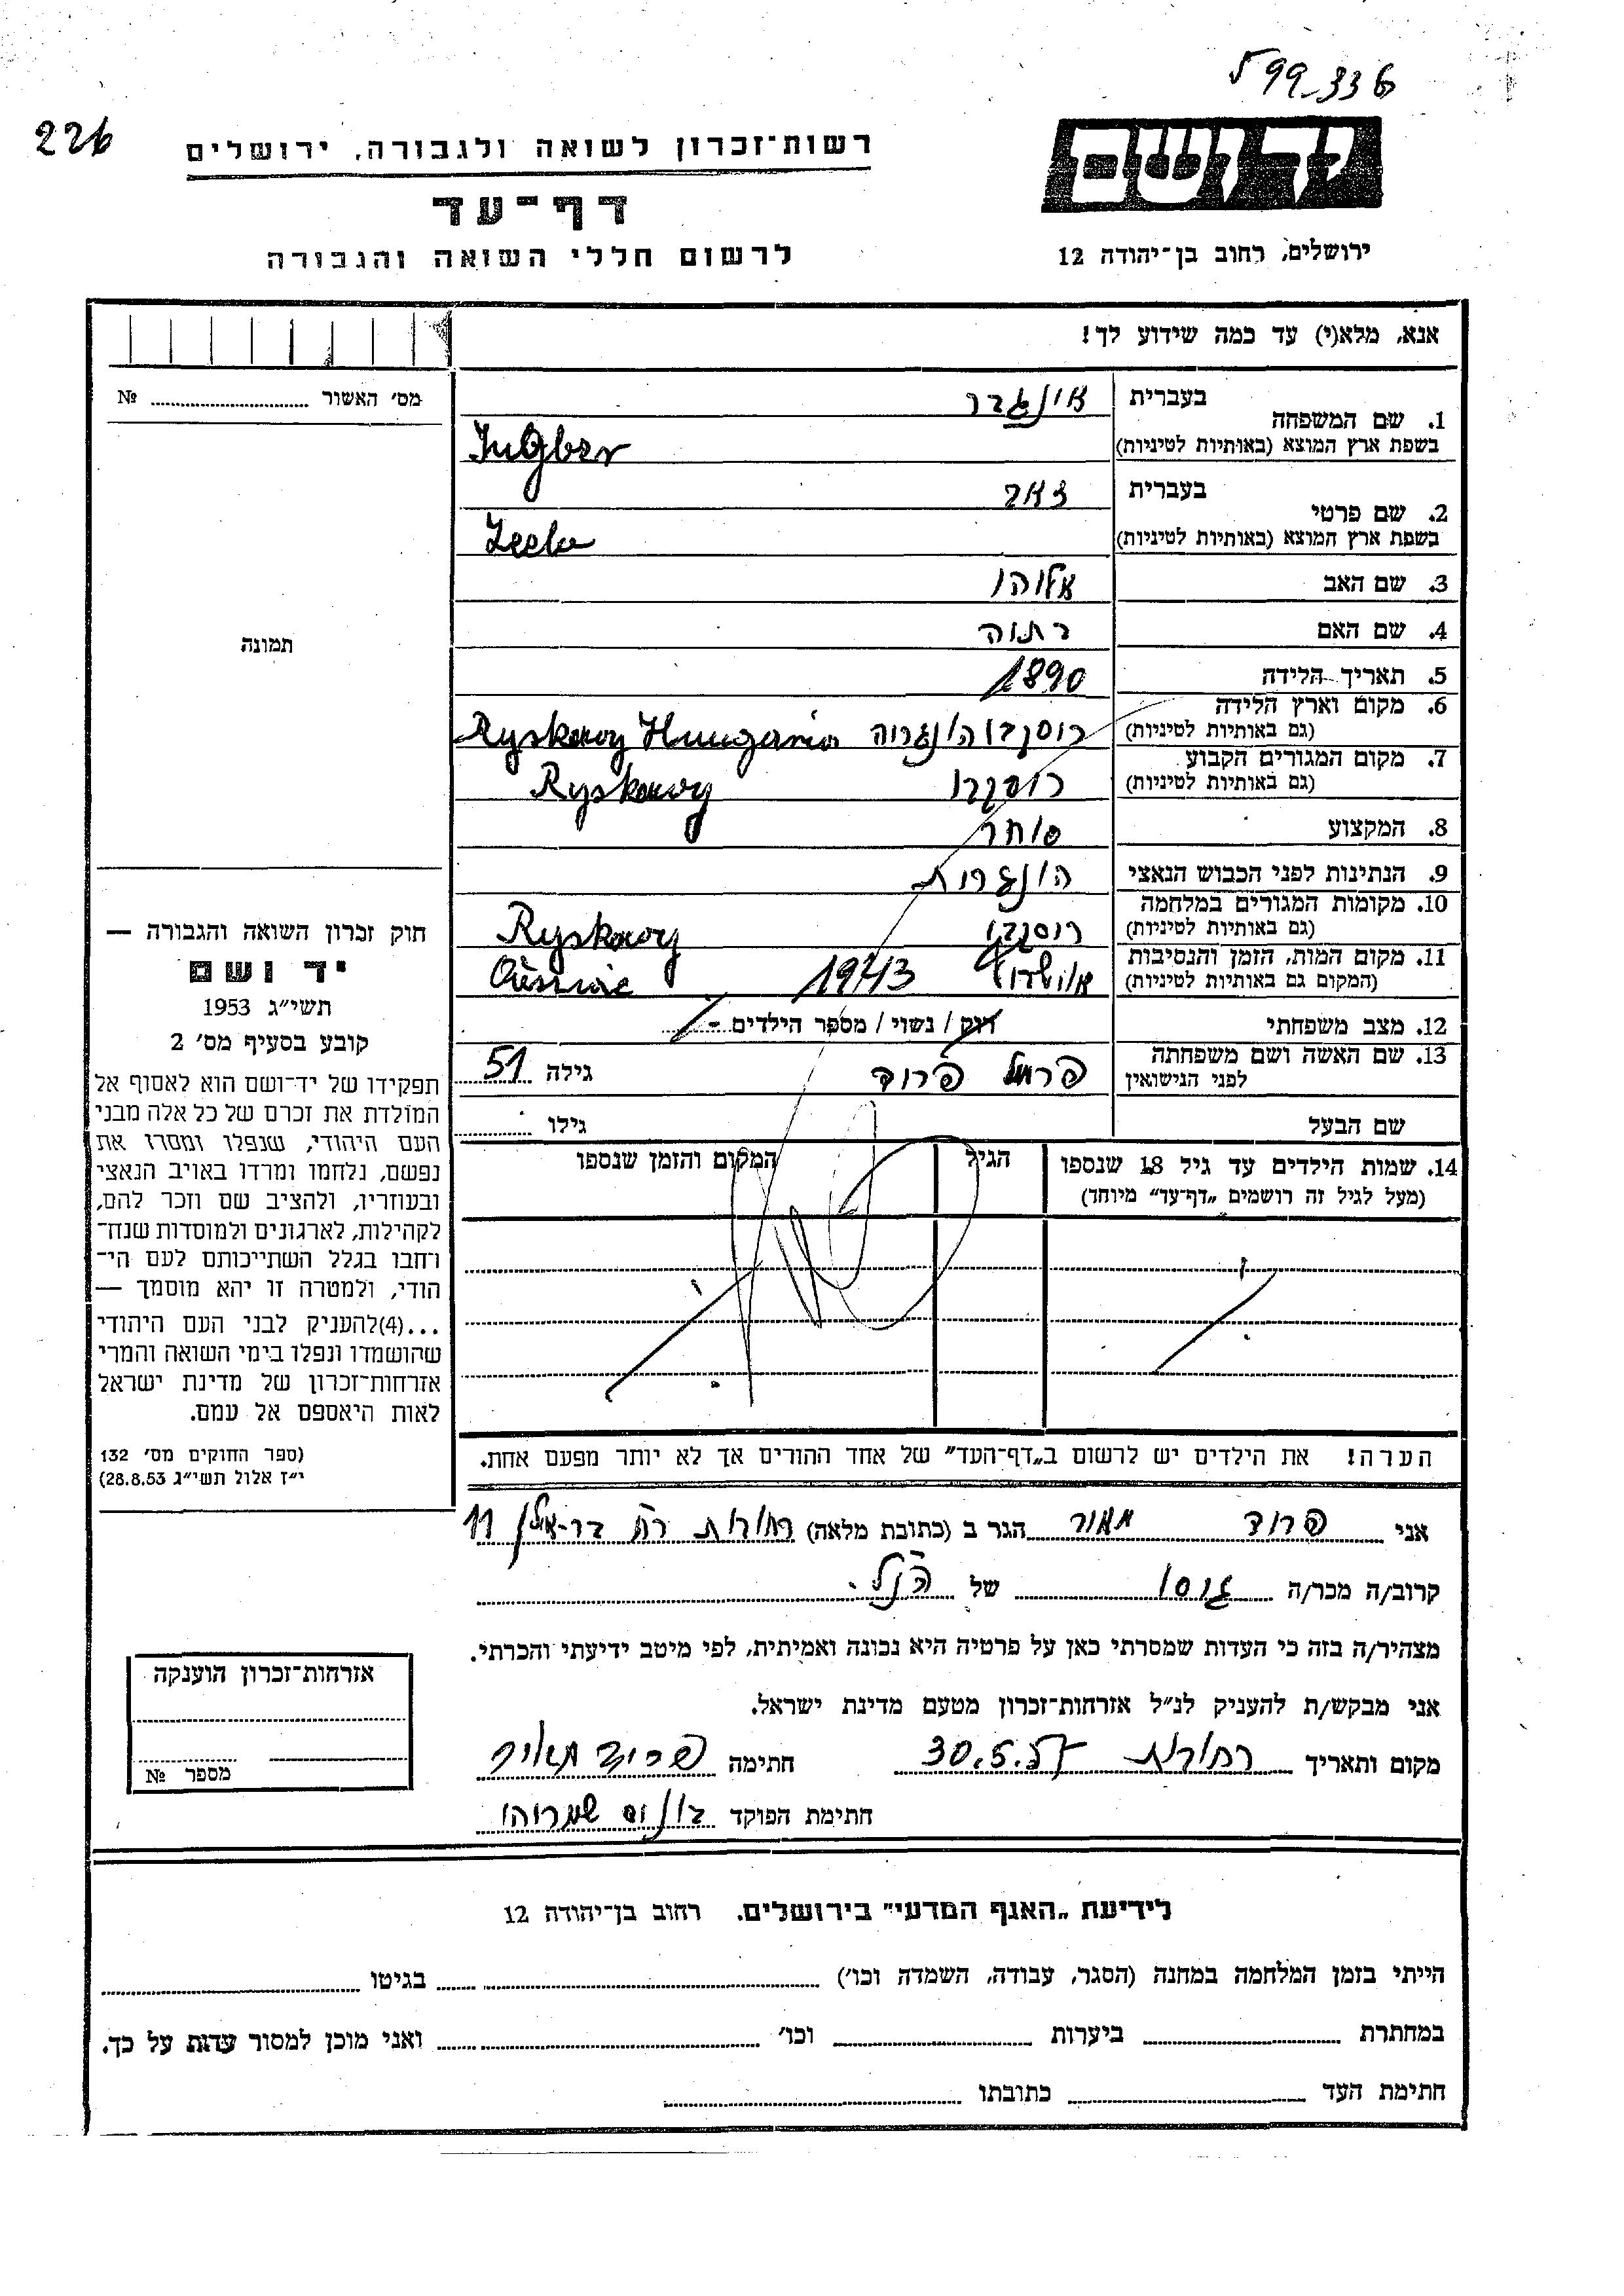 599-336
226
רשות־זכרון לשואה ולגבורה, ירושלים
יד ושם
דף־עד
לרשום חללי השואה והגבורה
ירושלים, רחוב בן־יהודה 12
אנא, מלא(י) עד כמה שידוע לך!
מס׳ האשור № 
1. שם המשפחה בעברית אינגבר
בשפת ארץ המוצא (באותיות לטיניות) Ingber
2. שם פרטי בעברית זאב
בשפת ארץ המוצא (באותיות לטיניות)
3. שם האב אליהו
4. שם האם
5. תאריך הלידה 1890
6. מקום וארץ הלידה
(גם באותיות לטיניות) הונגריה Ryskowy Hungaria
7. מקום המגורים הקבוע
(גם באותיות לטיניות) Ryskowy
8. המקצוע סוחר
9. הנתינות לפני הכבוש הנאצי הונגרית
10. מקומות המגורים במלחמה
(גם באותיות לטיניות) Ryskowy
11. מקום המות, הזמן והנסיבות
(המקום גם באותיות לטיניות) 1943
12. מצב משפחתי רוק / נשוי / מספר הילדים -
13. שם האשה ושם משפחתה
לפני הנישואין פרומל פרוד גילה 51
שם הבעל גילו
14. שמות הילדים עד גיל 18 שנספו הגיל המקום והזמן שנספו
(מעל לגיל זה רושמים „דף־עד” מיוחד)
הערה! את הילדים יש לרשום ב„דף־העד” של אחד ההורים אך לא יותר מפעם אחת.
תמונה
חוק זכרון השואה והגבורה —
יד ושם
תשי״ג 1953
קובע בסעיף מס׳ 2
תפקידו של יד־ושם הוא לאסוף אל
המולדת את זכרם של כל אלה מבני
העם היהודי, שנפלו ומסרו את
נפשם, נלחמו ומרדו באויב הנאצי
ובעוזריו, ולהציב שם וזכר להם,
לקהילות, לארגונים ולמוסדות שנח־
רחבו בגלל השתייכותם לעם הי־
הודי, ולמטרה זו יהא מוסמך —
...(4)להעניק לבני העם היהודי
שהושמדו ונפלו בימי השואה והמרי
אזרחות־זכרון של מדינת ישראל
לאות היאספם אל עמם.
(ספר החוקים מס׳ 132
י״ז אלול תשי״ג 28.8.53)
אני פרוד מאיר הגר ב (כתובת מלאה) רחובות רח׳ בר-אילן 11
קרוב/ה מכר/ה גיסו של הנ״ל.
מצהיר/ה בזה כי העדות שמסרתי כאן על פרטיה היא נכונה ואמיתית, לפי מיטב ידיעתי והכרתי.
אני מבקש/ת להעניק לנ״ל אזרחות־זכרון מטעם מדינת ישראל.
מקום ותאריך רחובות 30.5.57 חתימה פרוד מאיר
חתימת הפוקד
אזרחות־זכרון הוענקה
מספר №
לידיעת „האגף המדעי” בירושלים. רחוב בן־יהודה 12
הייתי בזמן המלחמה במחנה (הסגר, עבודה, השמדה וכו׳) בגיטו
במחתרת ביערות וכו׳ ואני מוכן למסור עדות על כך.
חתימת העד כתובתו